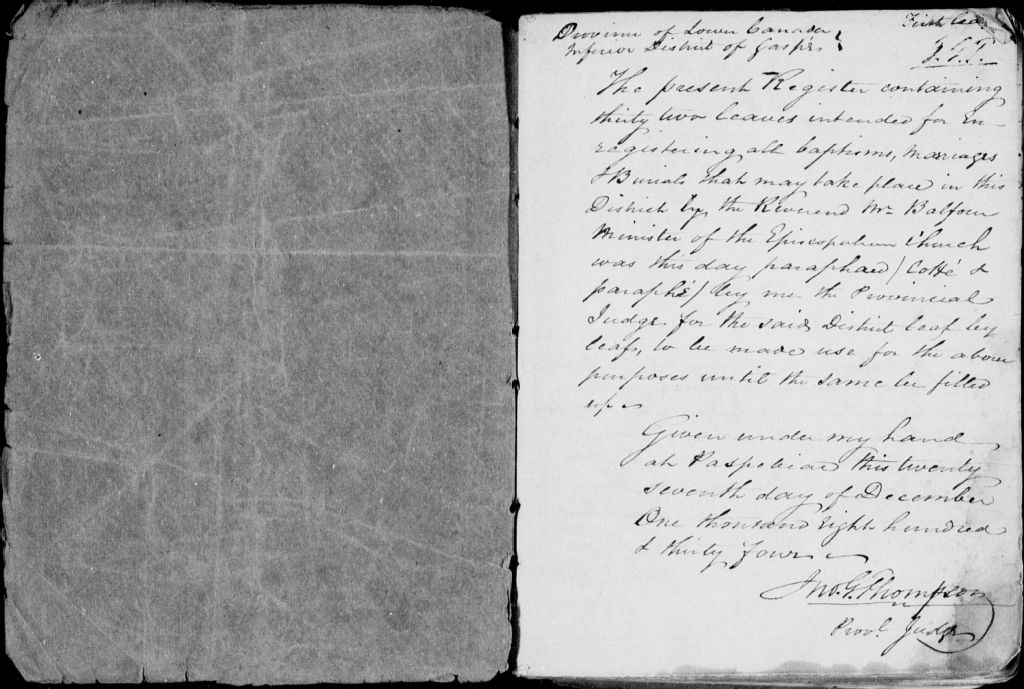 Province of Lower Canada
Inferior District of Gaspé
First leaf
J.G.T.
The present Register containing
thirty two leaves intended for En-
registering all baptisms, Marriages
& Burials that may take place in this
District by the Reverend Wm Balfour
Minister of the Episcopalian Church
was this day paraphaed / Cotté &
paraphé / by me the Provincial
Judge for the said District leaf by
leaf, to be made use for the above
purposes until the same be filled
up
Given under my hand
at Paspebiac this twenty
seventh day of December
One thousand Eight hundred
& thirty four
Jno. G. Thompson
Provl Judge